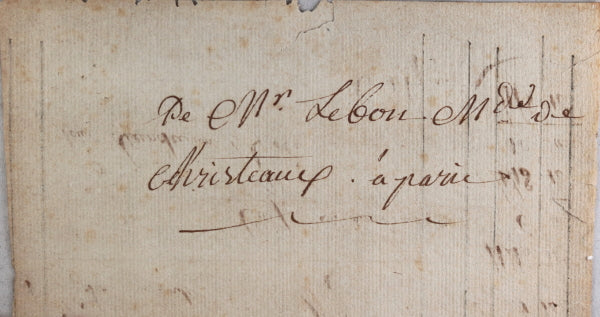 De Mr. Lebon Md de
Christeaux . à paris